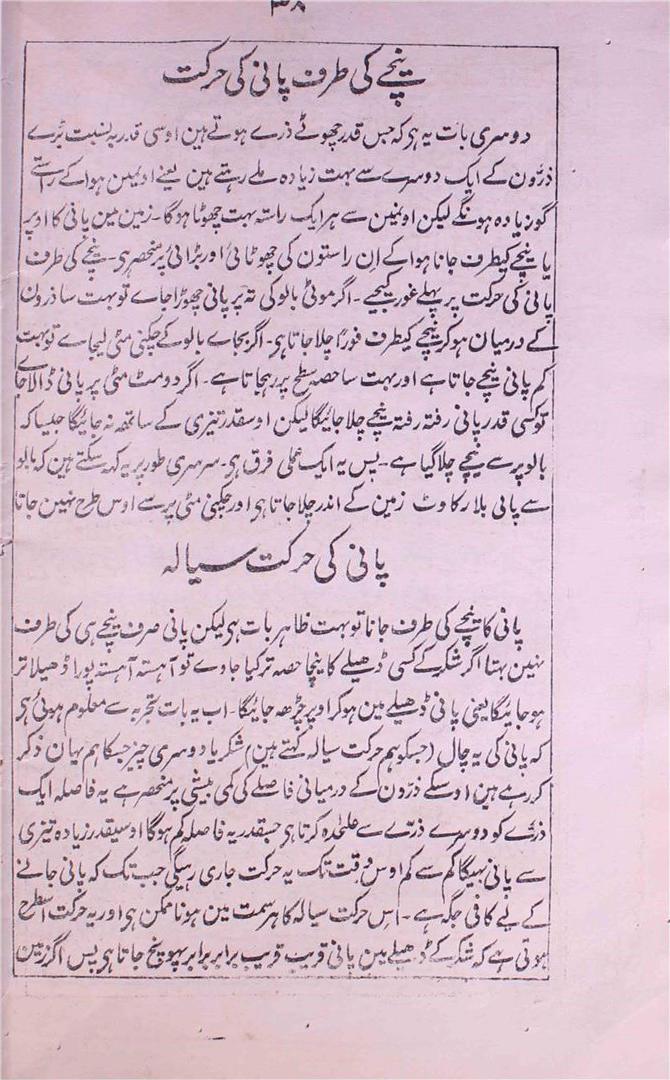 ۳۸
نیچے کی طرف پانی کی حرکت
دوسری بات یہ ہی کہ جس قدر چھوٹے ذرے ہوتے ہین اوسی قدر یہ نسبت بڑے
ذرّون کے ایک دوسرے سے بہت زیادہ ملے رہتے ہین یعنے اونمین ہوا کے راستے
گو زیادہ ہونگے لیکن اونمین سے ہر ایک راستہ بہت چھوٹا ہوگا۔ زمین مین پانی کا اوپر
یا نیچے کیطرف جانا ہوا کے اِن راستون کی چھوٹائی اور بڑائی پر منحصر ہی۔ نیچے کی طرف
پانی کی حرکت پر پہلے غور کیجیے۔ اگر موٹی بالو کی تہ پر پانی چھوڑا جاے تو بہت سا ذرون
کے درمیان ہو کر نیچے کیطرف فوراً چلا جاتا ہی۔ اگر بجاے بالو کے چکنی مٹی لیجاے تو بہت
کم پانی نیچے جاتا ہے اور بہت سا حصہ سطح پر رہجاتا ہے۔ اگر دومٹ مٹی پر پانی ڈالا جاے
تو کسی قدر پانی رفتہ رفتہ نیچے چلا جائیگا لیکن اوسقدر تیزی کے ساتھہ نہ جائیگا جیسا کہ
بالو پر سے نیچے چلا گیا ہے۔ پس یہ ایک عملی فرق ہی۔ سرسری طور پر یہ کہہ سکتے ہین کہ بالو
سے پانی بلا رکاوٹ زمین کے اندر چلا جاتا ہی اور چکنی مٹی پر سے اوس طرح نہین جاتا
پانی کی حرکت سیالہ
پانی کا نیچے کی طرف جانا تو بہت ظاہر بات ہی لیکن پانی صرف نیچے ہی کی طرف
نہین بہتا اگر شکر کے کسی ڈھیلے کا نیچا حصہ تر کیا جاوے تو آہستہ آہستہ پورا ڈھیلا تر
ہو جائیگا یعنی پانی ڈھیلے مین ہو کر اوپر چڑھ جائیگا۔ اب یہ بات تجربہ سے معلوم ہوئی ہی
کہ پانی کی یہ چال (جسکو ہم حرکت سیالہ کہتے ہین) شکر یا دوسری چیز جسکا ہم یہان ذکر
کر رہے ہین اوسکے ذرّون کے درمیانی فاصلے کی کمی بیشی پر منحصر ہے یہ فاصلہ ایک
ذرّے کو دوسرے ذرّے سے علٰحدہ کرتا ہی جسقدر یہ فاصلہ کم ہوگا اوسیقدر زیادہ تیزی
سے پانی بہیگا کم سے کم اوس وقت تک یہ حرکت جاری رہیگی جب تک کہ پانی جانے
کے لیے کافی جگہ ہے۔ اس حرکت سیالہ کا ہر سمت مین ہونا ممکن ہی اور یہ حرکت اسطرح
ہوتی ہے کہ شکر کے ڈھیلے مین پانی قریب قریب برابر برابر پہونچ جاتا ہی پس اگر زمین